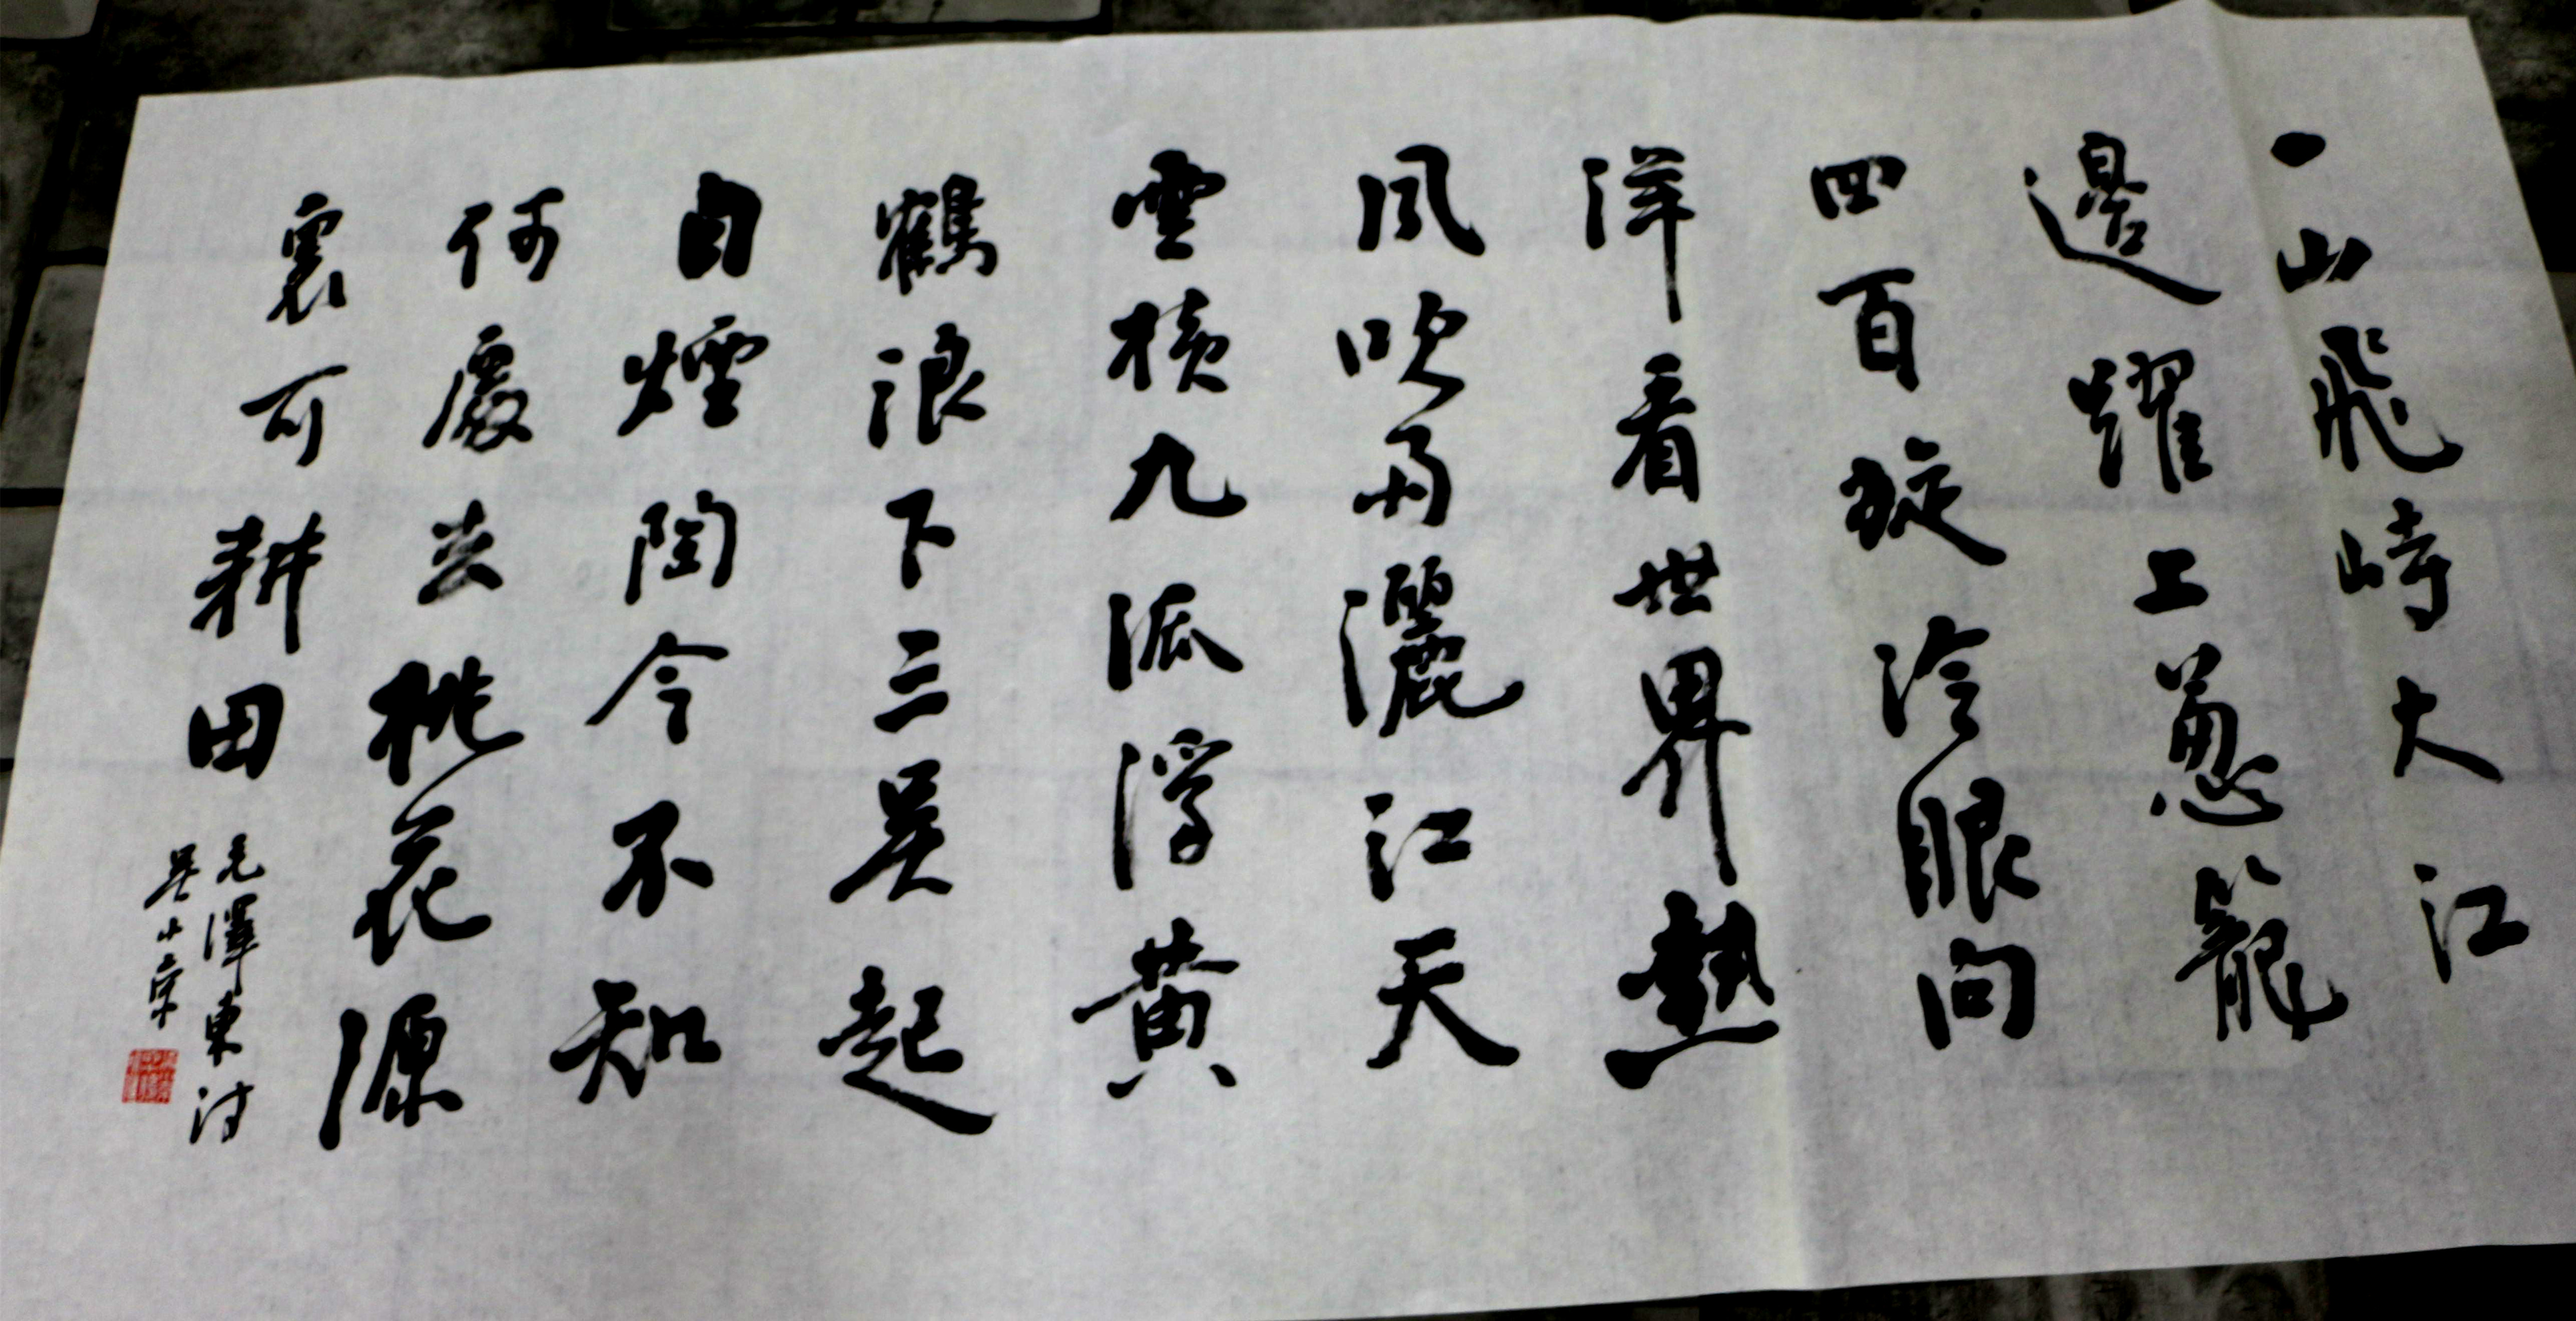 一山飛峙大江
邊躍上葱籠
四百旋冷眼向
洋看世界熱
風吹雨灑江天
雲橫九派浮黄
鶴浪下三吴起
白煙陶令不知
何處去桃花源
裏可耕田
毛澤東詩
吴小